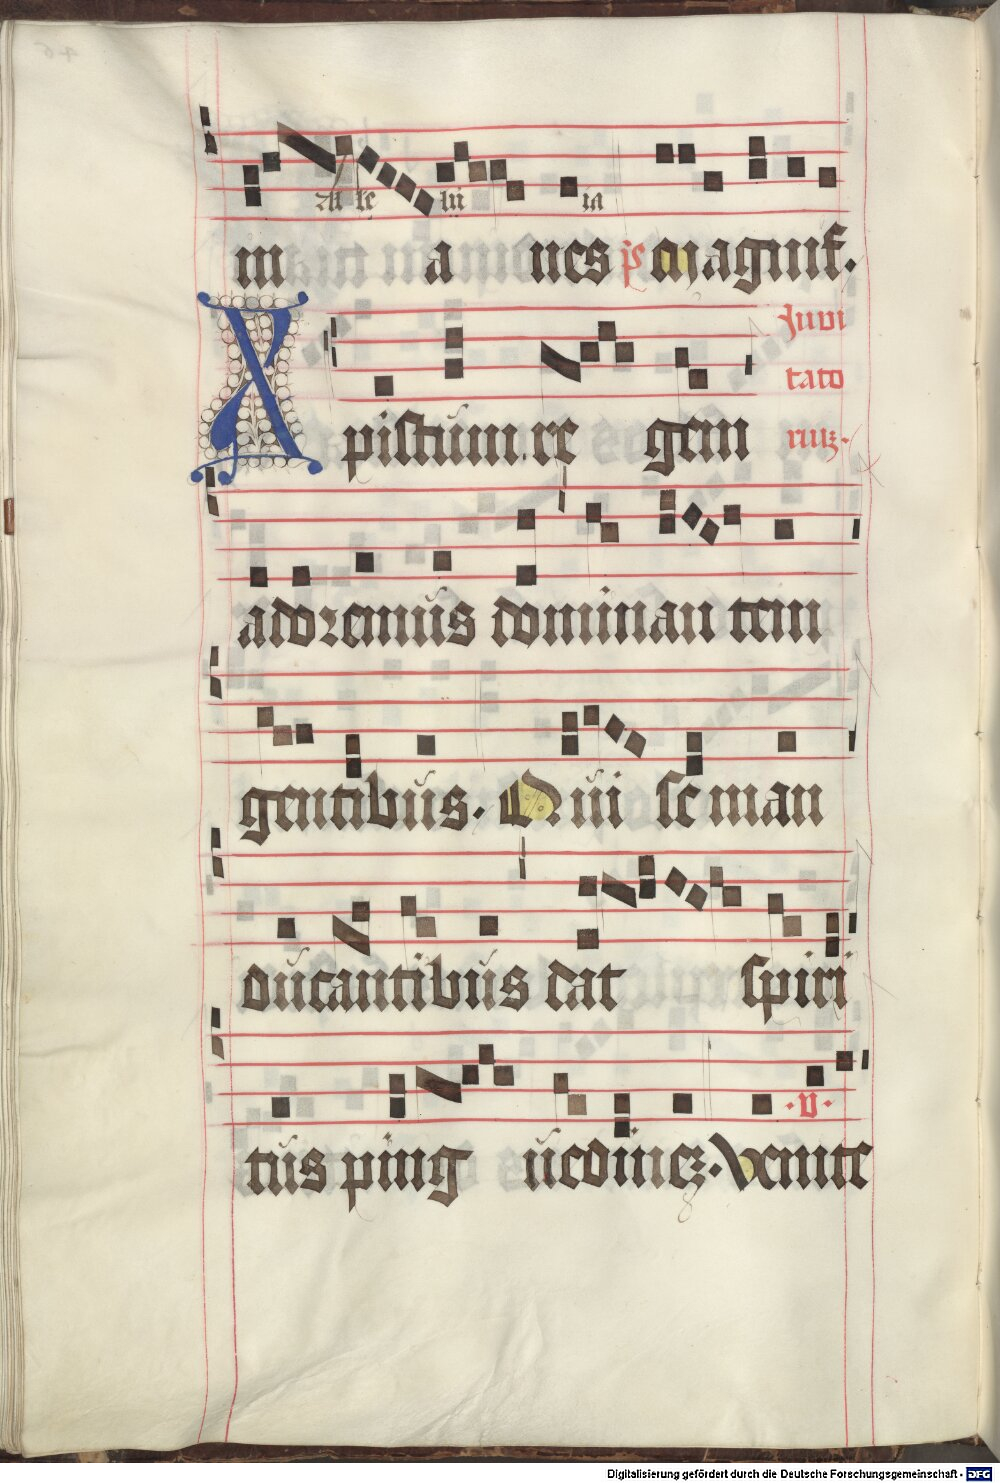 Al le lu ia
m a nes ps Magnif.
Xpistum re gem Invi tato riuz.
adoremus dominan tem
gentibus. Qui se man
ducantibus dat spiri
tus ping uedinez. v. Venite
Digitalisierung gefördert durch die Deutsche Forschungsgemeinschaft - DFG